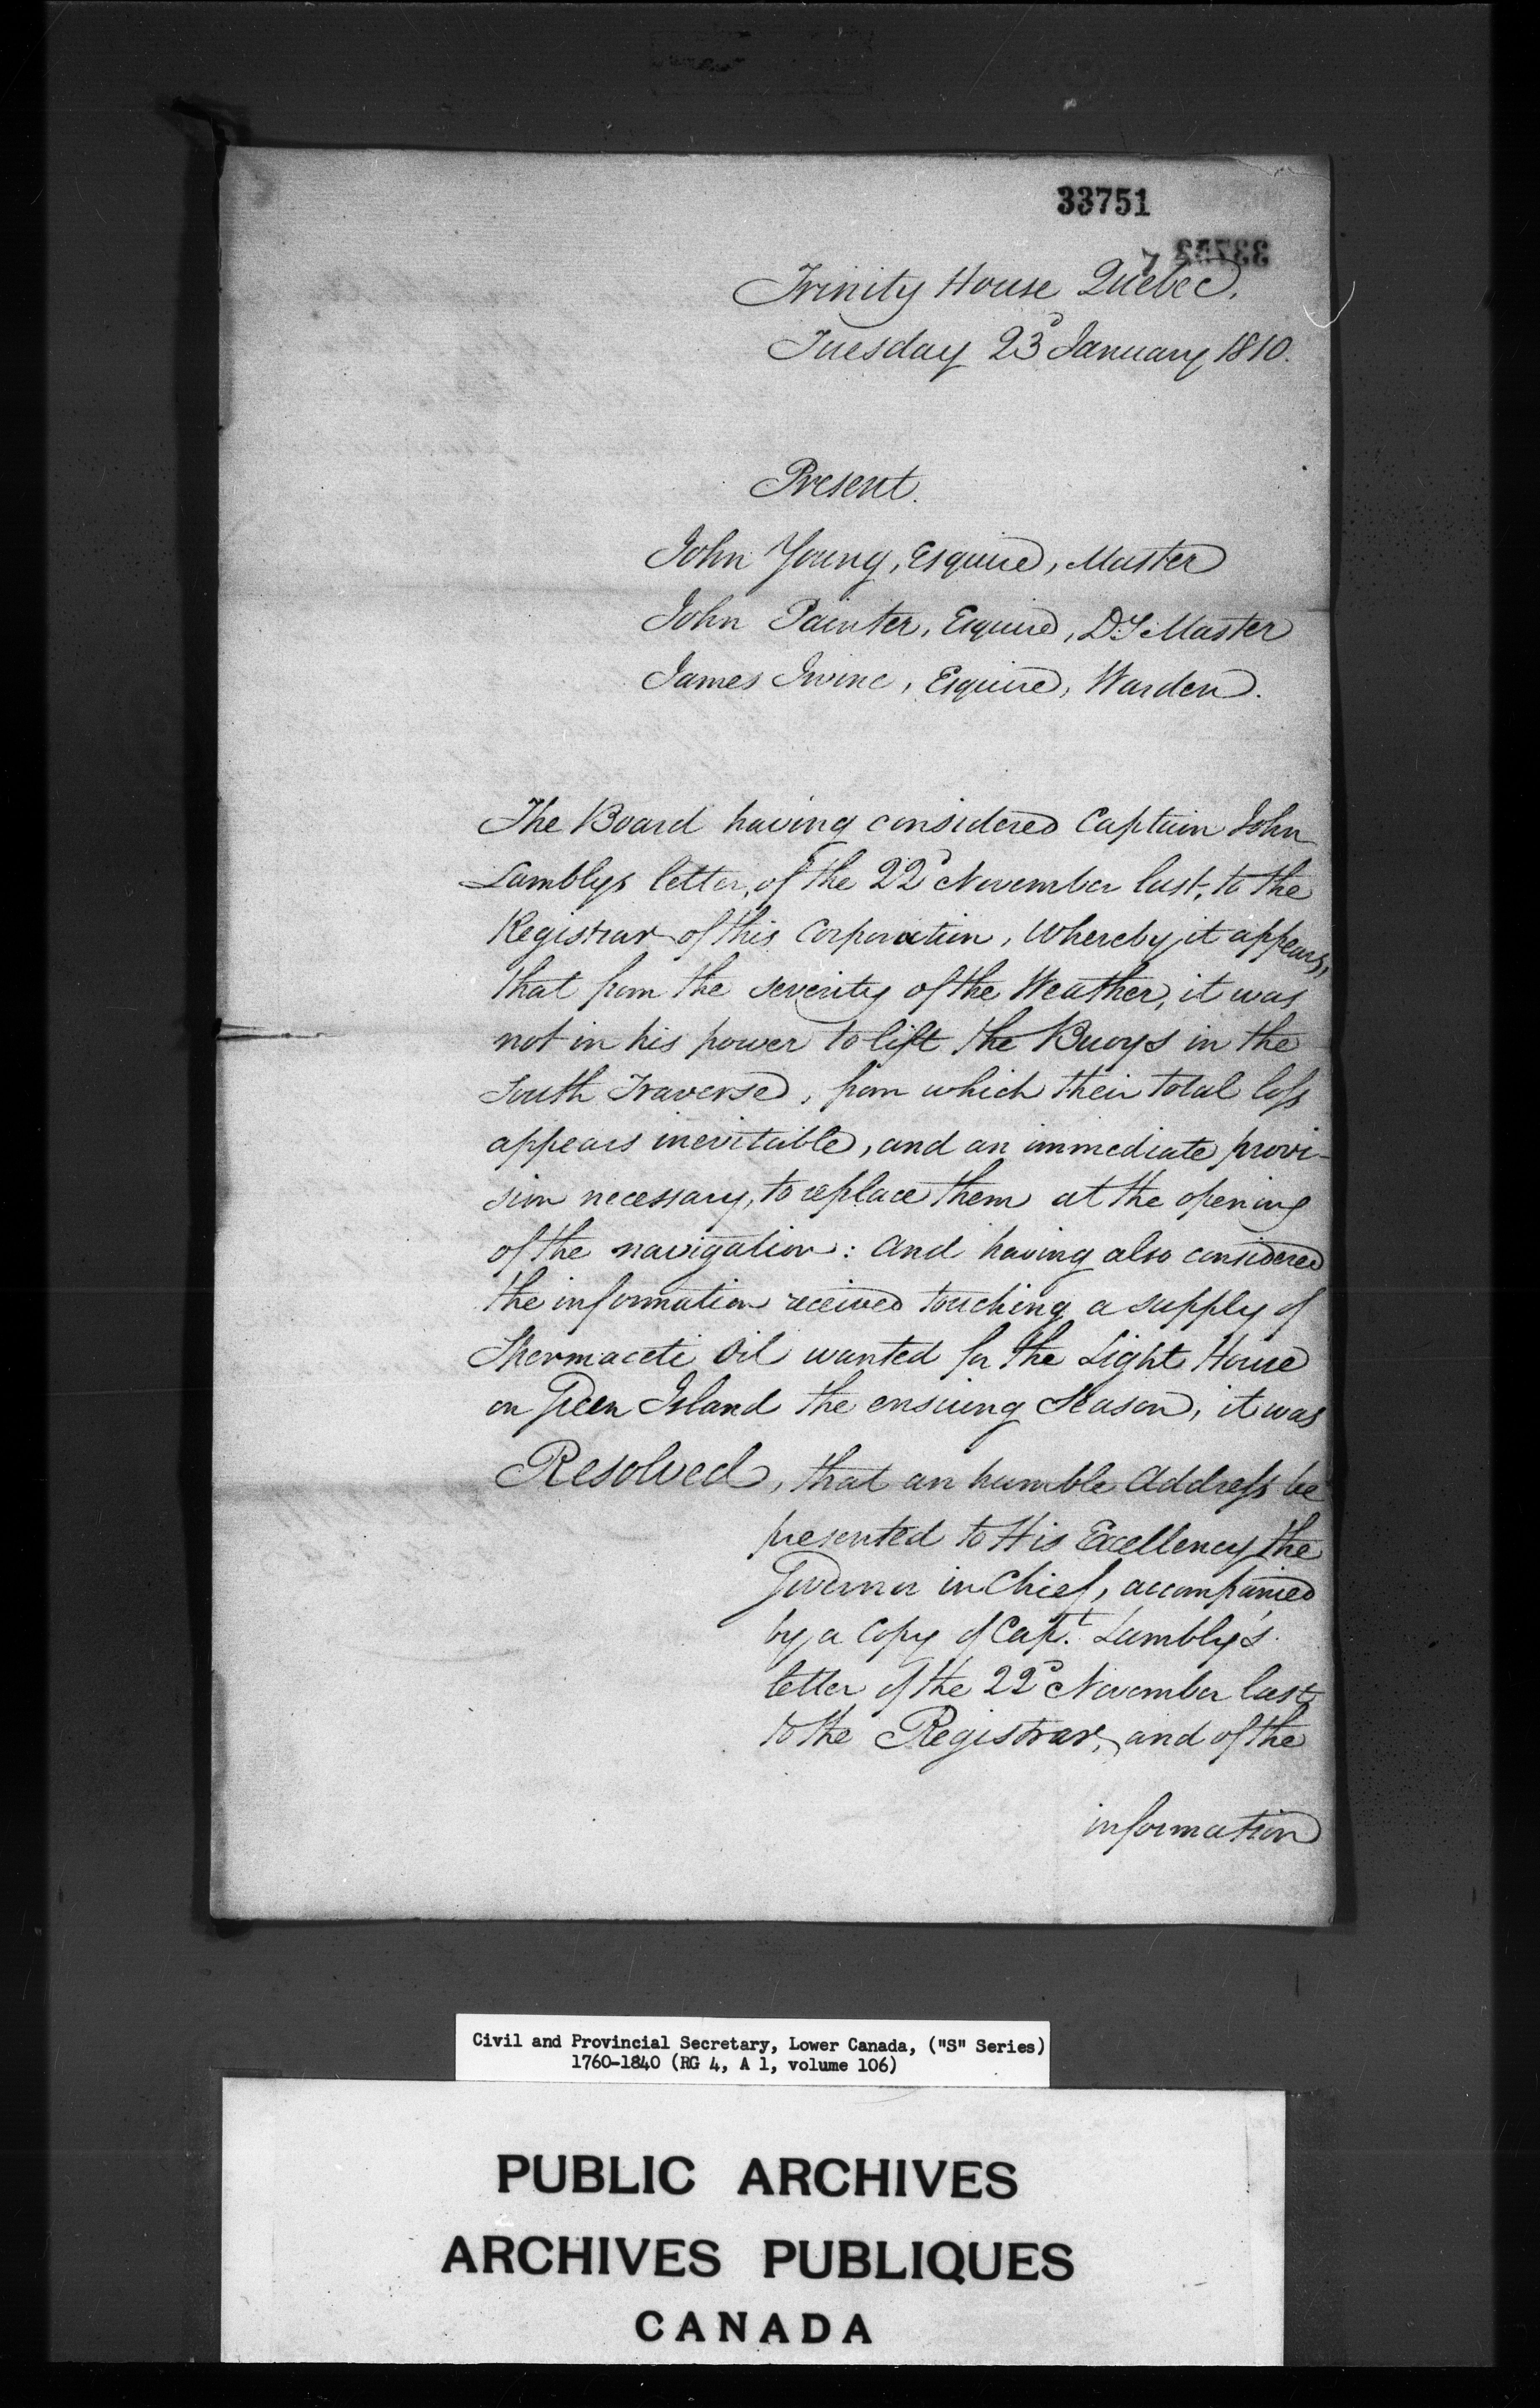 33751
33753
Trinity House Quebec.
Tuesday 23d January 1810.
Present.
John Young, Esquire, Master
John Painter, Esquire, Dy. Master
James Irvine, Esquire, Warden.
The Board having considered Captain John
Lamblys letter, of the 22d November last, to the
Registrar of this Corporation, Whereby it appears,
that from the severity of the Weather, it was
not in his power to lift the Buoys in the
South Traverse, from which their total loss
appears inevitable, and an immediate provi-
sion necessary, to replace them at the opening
of the navigation: And having also considered
the information received touching a supply of
Spermaceti Oil wanted for the Light House
on Green Island the ensuing Season, it was
Resolved, that an humble Address be
presented to His Excellency the
Governor in Chief, accompanied
by a Copy of Capt. Lambly's
letter of the 22d November last
to the Registrar, and of the
information
Civil and Provincial Secretary, Lower Canada, ("S" Series)
1760-1840 (RG 4, A 1, volume 106)
PUBLIC ARCHIVES
ARCHIVES PUBLIQUES
CANADA